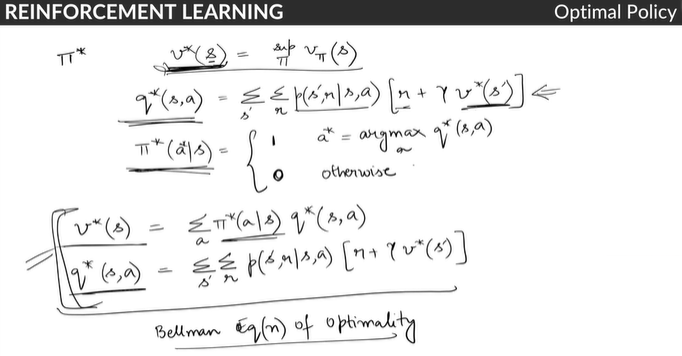 REINFORCEMENT LEARNING
Optimal Policy
π* v*(s) = sup_π v_π(s)
q*(s,a) = Σ_s' Σ_r p(s',r|s,a) [r + γ v*(s')] ⇐
π*(a*|s) = { 1 a* = argmax_a q*(s,a)
0 otherwise
v*(s) = Σ_a π*(a|s) q*(s,a)
q*(s,a) = Σ_s' Σ_r p(s',r|s,a) [r + γ v*(s')]
Bellman Eq(n) of optimality